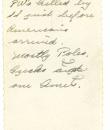 PWs killed by
SS just before
Americans
arrived.
Mostly Poles,
Czechs
on Limit.